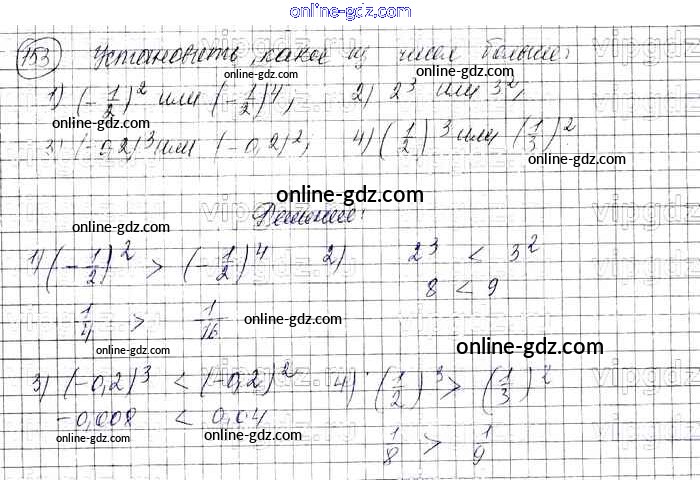 online-gdz.com
153 Установить, какое из чисел больше:
1) (-1/2)^2 или (-1/2)^4; 2) 2^3 или 3^2;
online-gdz.com online-gdz.com
online-gdz.com
3) (-0,2)^3 или (-0,2)^2; 4) (1/2)^3 или (1/3)^2
online-gdz.com online-gdz.com
online-gdz.com
Решение:
1) (-1/2)^2 > (-1/2)^4 2) 2^3 < 3^2
8 < 9
1/4 > 1/16 online-gdz.com
online-gdz.com online-gdz.com
3) (-0,2)^3 < (-0,2)^2 4) (1/2)^3 > (1/3)^2
online-gdz.com
-0,008 < 0,04
online-gdz.com online-gdz.com
1/8 > 1/9